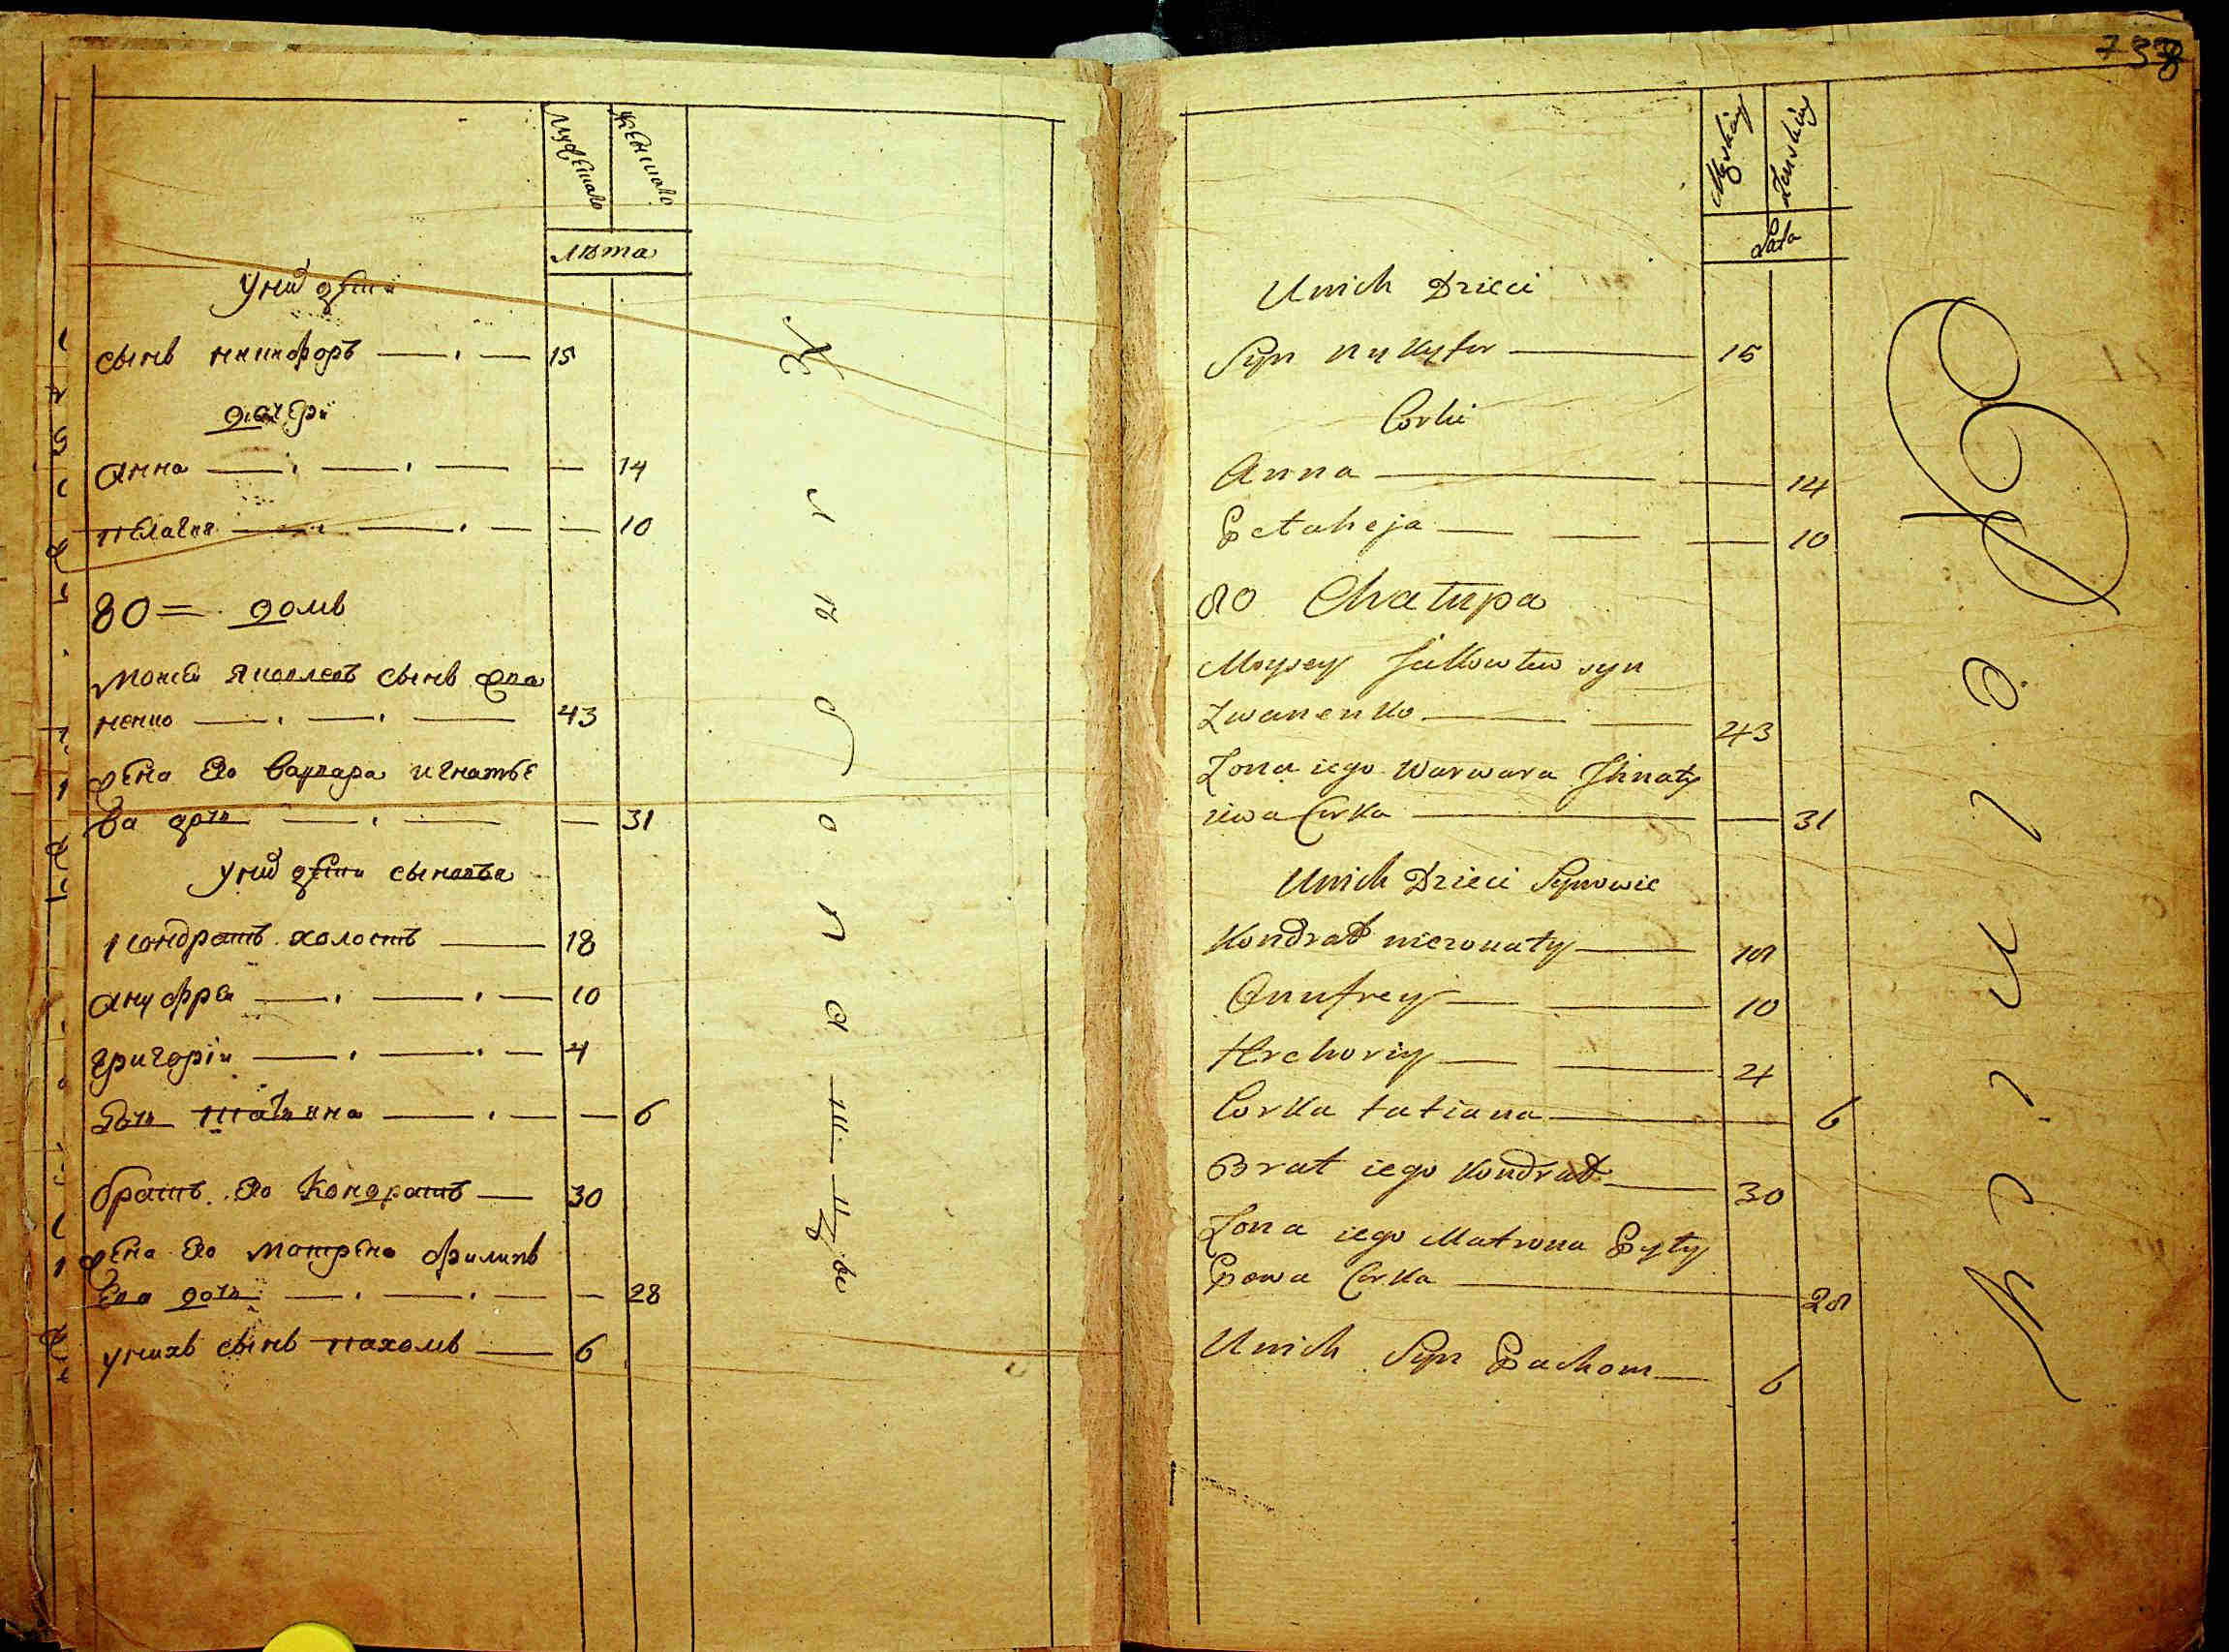 мужеска
женска
лѣта
У них дети
сынъ никифоръ 15
дочери
анна 14
пелагия 10
80 = домъ
Моисей яковлевъ сынъ
ненко 43
жена его варвара игнатье
ва дочь 31
У них дети сыновья
кондратъ холостъ 18
ануфрей 10
григорій 4
дочь татьяна 6
братъ его Кондратъ 30
жена его Мотрена филипв
ева дочь 28
у нихъ сынъ пахомъ 6
738
Męskiey
Żenskiey
Lata
U nich Dzieci
Syn Nykyfor 15
Corki
Anna 14
Pelaheja 10
80 Chałupa
Moysey Jakowlew syn
Zwanenko 43
Zona iego Warwara Ihnaty
iewa Corka 31
U nich Dzieci Synowie
Kondrad niezonaty 18
Onufrey 10
Hrehoriy 4
Corka tatiana 6
Brat iego Kondrad 30
Zona iego Matrona Pyly
Powa Corka 28
U nich Syn Pachom 6